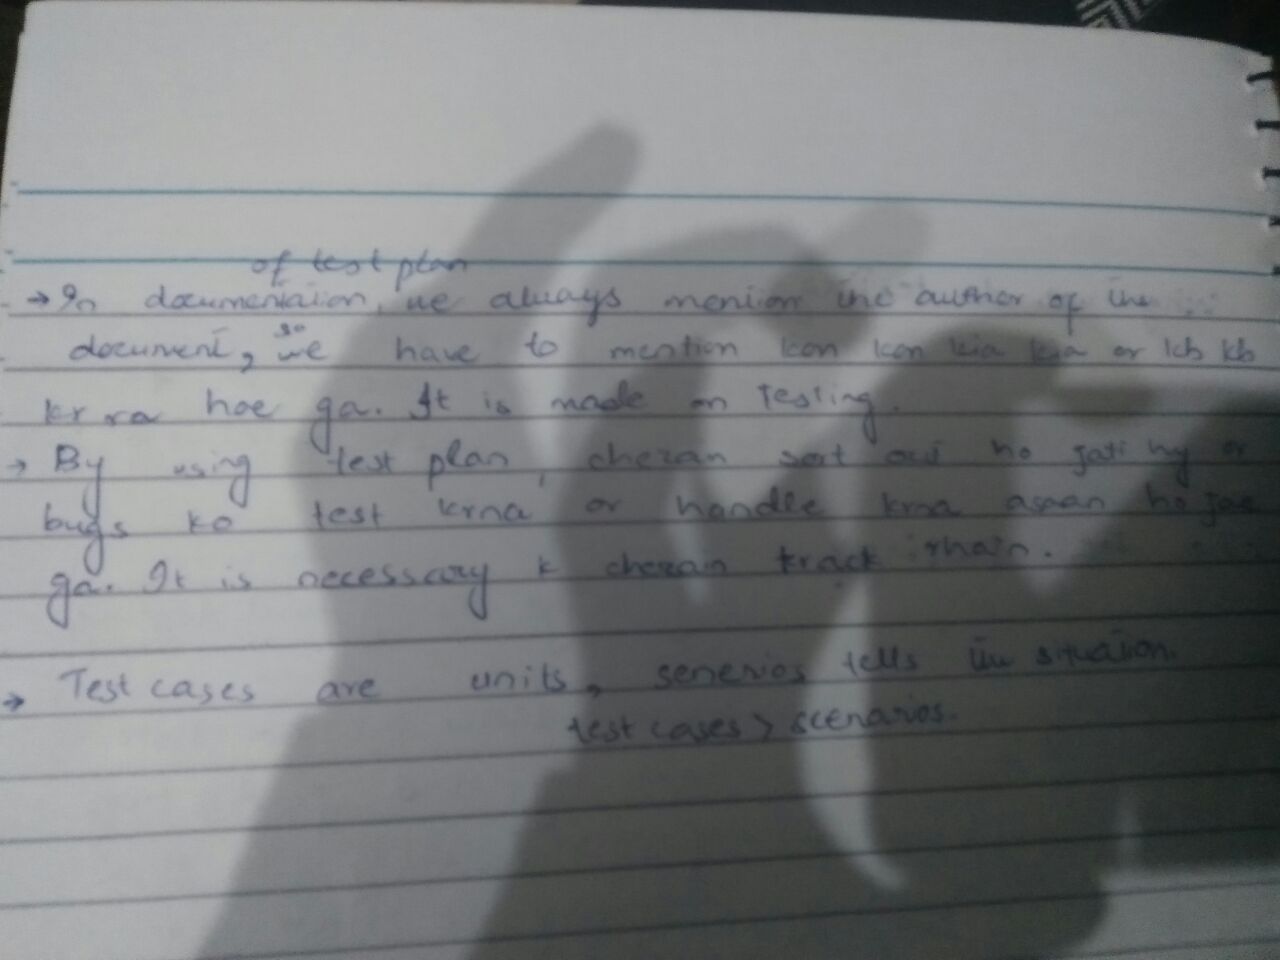 of test plan
→ In documentation, we always mention the author of the
document, so we have to mention kon kon kia kia or kb kb
kr ra hoe ga. It is made on Testing.
→ By using test plan, cherzan sort out ho jati hy or
bugs ko test krna or handle krna asaan ho jae
ga. It is necessary k cherzain track rhain.
→ Test cases are units, senerios tells the situation
test cases > scenarios.